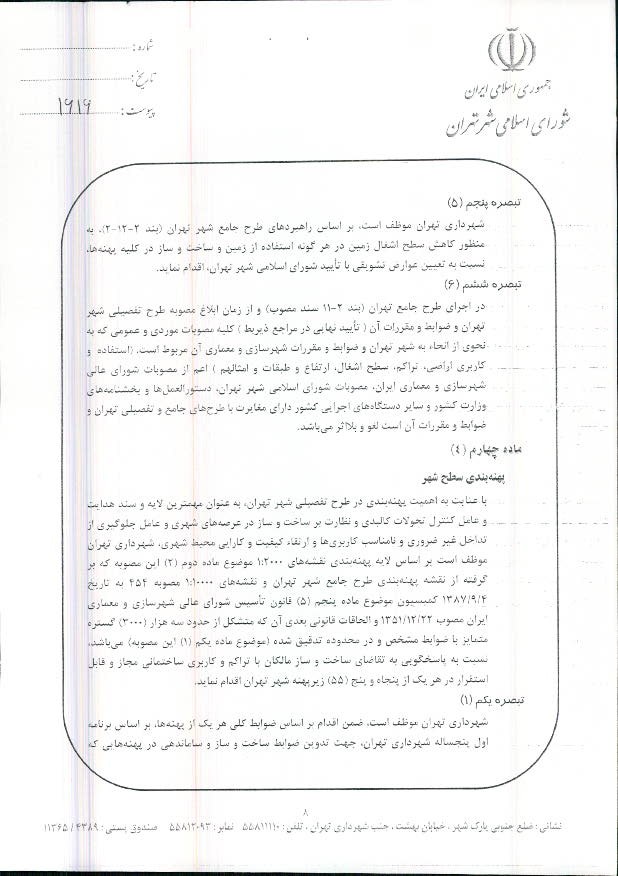 جمهوری اسلامی ایران
شورای اسلامی شهر تهران
شماره :
تاریخ :
پیوست : ۱۹۱۶
تبصره پنجم (۵)
شهرداری تهران موظف است، بر اساس راهبردهای طرح جامع شهر تهران (بند ۲-۱۲-۲)، به
منظور کاهش سطح اشغال زمین در هر گونه استفاده از زمین و ساخت و ساز در کلیه پهنه‌ها،
نسبت به تعیین عوارض تشویقی با تأیید شورای اسلامی شهر تهران، اقدام نماید.
تبصره ششم (۶)
در اجرای طرح جامع تهران (بند ۲-۱۱ سند مصوب) و از زمان ابلاغ مصوبه طرح تفصیلی شهر
تهران و ضوابط و مقررات آن ( تأیید نهایی در مراجع ذیربط ) کلیه مصوبات موردی و عمومی که به
نحوی از انحاء به شهر تهران و ضوابط و مقررات شهرسازی و معماری آن مربوط است، (استفاده و
کاربری اراضی، تراکم، سطح اشغال، ارتفاع و طبقات و امثالهم ) اعم از مصوبات شورای عالی
شهرسازی و معماری ایران، مصوبات شورای اسلامی شهر تهران، دستورالعمل‌ها و بخشنامه‌های
وزارت کشور و سایر دستگاه‌های اجرایی کشور دارای مغایرت با طرح‌های جامع و تفصیلی تهران و
ضوابط و مقررات آن است لغو و بلااثر می‌باشد.
ماده چهارم (۴)
پهنه‌بندی سطح شهر
با عنایت به اهمیت پهنه‌بندی در طرح تفصیلی شهر تهران، به عنوان مهمترین لایه و سند هدایت
و عامل کنترل تحولات کالبدی و نظارت بر ساخت و ساز در عرصه‌های شهری و عامل جلوگیری از
تداخل غیر ضروری و نامناسب کاربری‌ها و ارتقاء کیفیت و کارایی محیط شهری، شهرداری تهران
موظف است بر اساس لایه پهنه‌بندی نقشه‌های ۱:۲۰۰۰ موضوع ماده دوم (۲) این مصوبه که بر
گرفته از نقشه پهنه‌بندی طرح جامع شهر تهران و نقشه‌های ۱:۱۰۰۰۰ مصوبه ۴۵۴ به تاریخ
۱۳۸۷/۹/۴ کمیسیون موضوع ماده پنجم (۵) قانون تأسیس شورای عالی شهرسازی و معماری
ایران مصوب ۱۳۵۱/۱۲/۲۲ و الحاقات قانونی بعدی آن که متشکل از حدود سه هزار (۳۰۰۰) گستره
متمایز با ضوابط مشخص و در محدوده تدقیق شده (موضوع ماده یکم (۱) این مصوبه) می‌باشد،
نسبت به پاسخگویی به تقاضای ساخت و ساز مالکان با تراکم و کاربری ساختمانی مجاز و قابل
استقرار در هر یک از پنجاه و پنج (۵۵) زیرپهنه شهر تهران اقدام نماید.
تبصره یکم (۱)
شهرداری تهران موظف است، ضمن اقدام بر اساس ضوابط کلی هر یک از پهنه‌ها، بر اساس برنامه
اول پنجساله شهرداری تهران، جهت تدوین ضوابط ساخت و ساز و ساماندهی در پهنه‌هایی که
۸
نشانی : ضلع جنوبی پارک شهر ، خیابان بهشت ، جنب شهرداری تهران ، تلفن : ۵۵۸۱۱۱۱۰ نمابر : ۵۵۸۱۲۰۹۳ صندوق پستی : ۴۳۸۹ / ۱۱۳۶۵